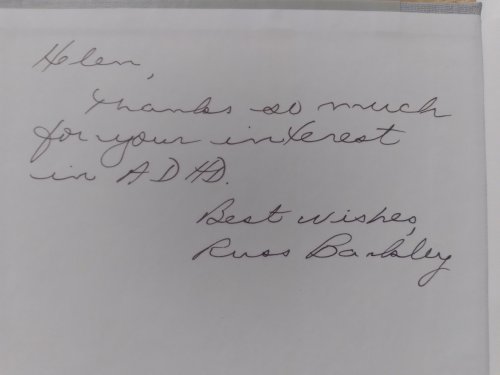 Helen,
Thanks so much
for your interest
in ADHD.
Best Wishes,
Russ Barkley